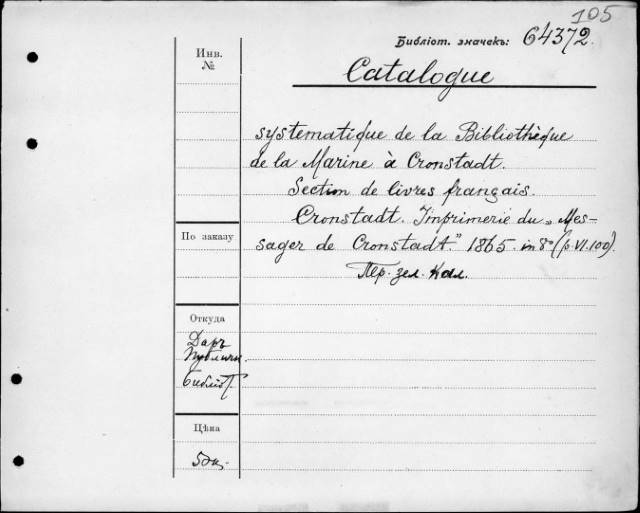 105
Библіот. значекъ: 64372.
Инв.
№
Catalogue
systematique de la Bibliothèque
de la Marine à Cronstadt.
Section de livres français.
Cronstadt. Imprimerie du „Mes-
sager de Cronstadt." 1865. in 8° (p. VI. 100).
Пер. зел. кол.
По заказу
Откуда
Даръ
Публичн.
Библіот.
Цѣна